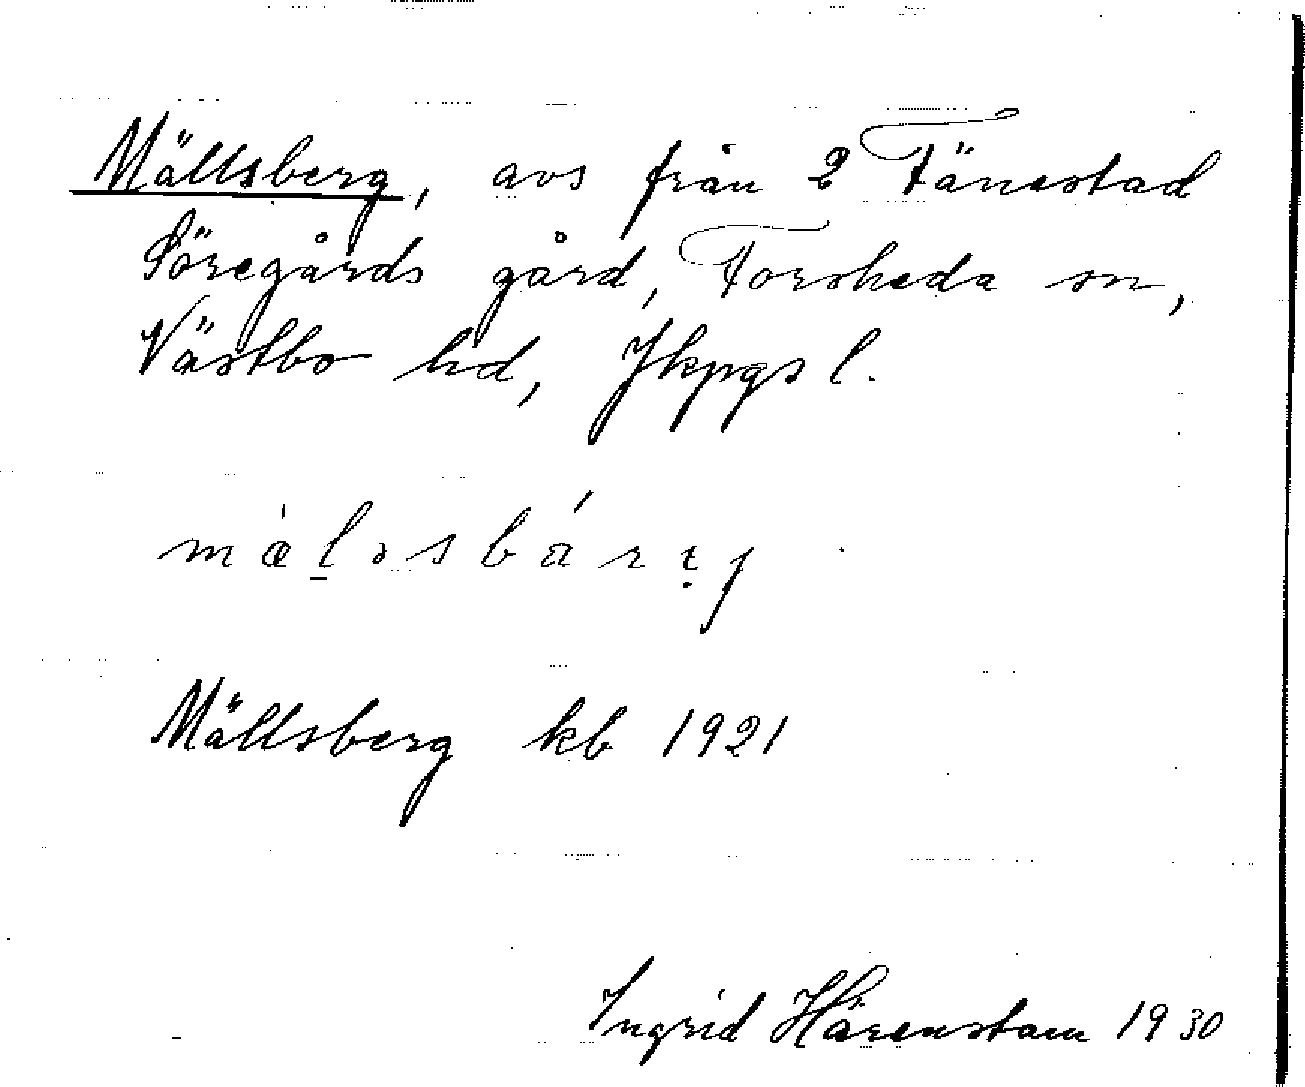 Mällsberg, avs från 2 Fänestad
Söregårds gård, Forsheda sn,
Västbo hd, Jkpgs l.
Mällsberg kb 1921
Ingrid Härenstam 1930